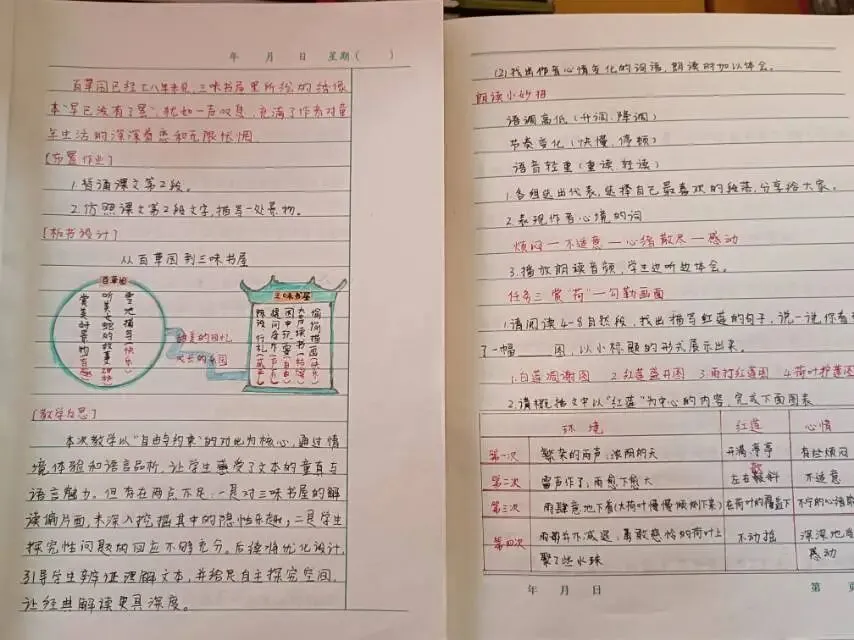 年 月 日 星期( )
百草园已经七八年未见,三味书屋里所绘的绣像
本“早已没有了罢”,犹如一声叹息,充满了作者对童
年生活的深深眷恋和无限怅惘.
[布置作业]
1.背诵课文第2段。
2.仿照课文第2段文字,描写一处景物。
[板书设计]
从百草园到三味书屋
百草园
雪地捕鸟(快乐)
听美女蛇的故事
赏美时景物(有趣)
三味书屋
偷偷描画
大声读书
园中玩耍
提问
陈设 行礼
甜美的回忆
成长的乐园
[教学反思]
本次教学以“自由与约束”的对比为核心,通过情
境体验和语言品析,让学生感受了文本的童真与
语言魅力。但存在两点不足:一是对三味书屋的解
读偏片面,未深入挖掘其中的隐性乐趣;二是学生
探究性问题的回应不够充分。后续将优化设计,
引导学生辩证理解文本,并给足自主探究空间,
让经典解读更具深度。
(2)找出作者心情变化的词语,朗读时加以体会。
朗读小妙招
语调高低(升调.降调)
节奏变化(快慢.停顿)
语音轻重(重读.轻读)
1.各组选出代表,选择自己最喜欢的段落,分享给大家。
2.表现作者心境的词
烦闷—不适意—心绪散尽—感动
3.播放朗读音频,学生边听边体会。
任务三 赏“荷”一句勤画面
1.请阅读4-8自然段,找出描写红莲的句子,说一说你看到
了一幅 图,以小标题的形式展示出来。
1.白莲凋谢图 2.红莲盛开图 3.雨打红莲图 4.荷叶护莲图
2.请概括文中以“红莲”为中心的内容,完成下面图表
环境 红莲 心情
第一次 繁杂的雨声,浓阴的天 开满,亭亭 有些烦闷
第二次 雷声作了,雨愈下愈大 左右欹斜 不适意
第三次 雨肆意地下着(大荷叶慢慢倾侧下来) 在荷叶的覆盖下 不宁的心绪散
第四次 雨势并不减退,勇敢慈怜的荷叶上 不动摇 深深地
聚了些水珠 感动
年 月 日 第 页